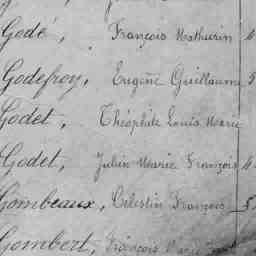 Godé, François Mathurin
Godefroy, Eugène Guillaume 5
Godet, Théophile Louis Marie
Godet, Julien Marie François
Gombeaux, Célestin François 5
Gombert, François